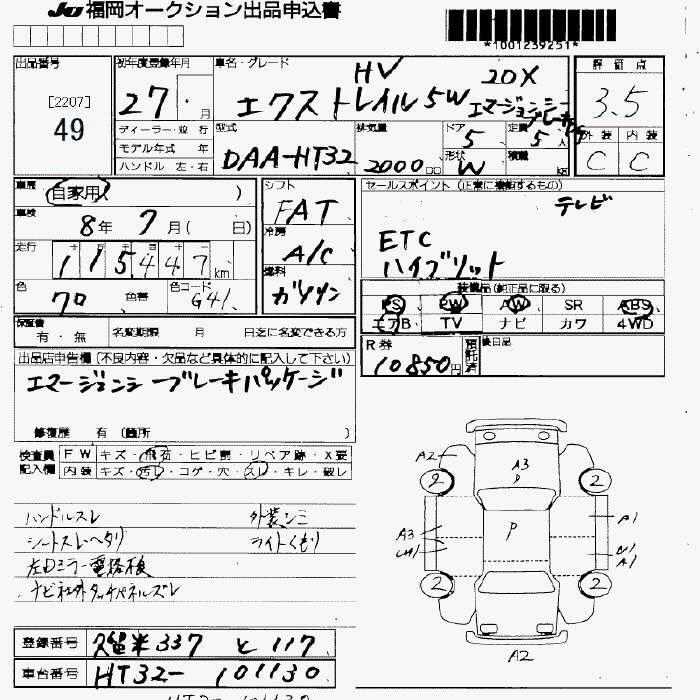 JU 福岡オークション出品申込書
*1001239251*
出品番号 [2207] 49
初年度登録年月 27. 月
ディーラー・並 行
モデル年式 年
ハンドル 左・右
車名・グレード HV 20X
エクストレイル 5W エマージェンシーブレーキP
型式 DAA-HT32
排気量 2000 cc
ドア 5
形状 W
定員 5 人
積載 kg
評 価 点 3.5
外 装 C
内 装 C
車歴 自家用( )
車検 8年 7月( 日)
走行 115447 km
色 クロ 色替
色コード G41
シフト FAT
冷房 A/C
燃料 ガソリン
セールスポイント (正常に機能するもの)
テレビ
ETC
ハイブリット
装備品(純正品に限る)
PS PW AW SR ABS
エアB TV ナビ カワ 4WD
保証書 有・無
名変期限 月 日迄に名変できる方
R券 10850円 預託済
後日品
出品店申告欄 (不良内容・欠品など具体的に記入して下さい)
エマージェンシーブレーキパッケージ
修復歴 有 (箇所 )
検査員記入欄
FW キズ・飛石・ヒビ割・リペア跡・X要
内装 キズ・汚レ・コゲ・穴・スレ・キレ・破レ
ハンドルスレ 外装シミ
シートスレヘタリ ライトくもり
左ドミラー電格検
ナビ社外タッチパネルズレ
A2
A3
P
2 2
P
A3 A1
U1 U1
A1
2 2
A2
登録番号 久留米 337 と 117
車台番号 HT32-101130
HT32-101130